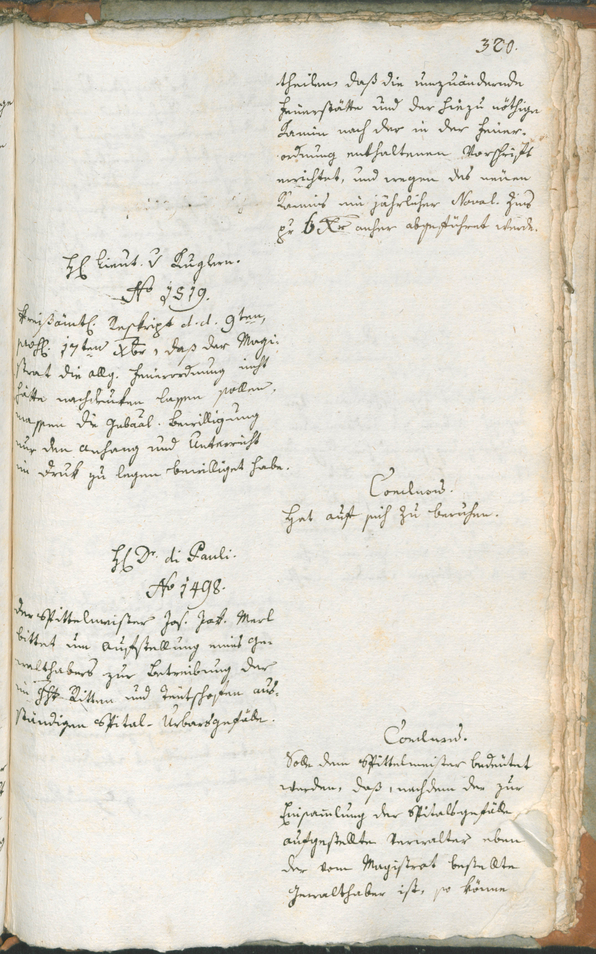 320.
theilen, daß die umzuändernde
Feuerstätte und der hiezu nöthige
Kamin nach der in der Feuer-
ordnung enthaltenen Vorschrift
errichtet, und wegen des neuen
Kamins ein jährlicher Noval-Zins
pr 6 Xr anher abgeführet werde.
H. Lieut. v Kuglern.
No 1519.
Kreisämtl. Reskript d. d. 9ten,
17ten Xbr, daß der Magi-
strat die allg. Feuerordnung nicht
hätte nachdruken lassen sollen,
massen die Gubernial. Bewilligung
nur den Anhang und Unterricht
in Druk zu legen bewilliget habe.
Conclusum.
Hat auf sich zu beruhen.
H. Dr. di Pauli.
No 1498.
Der Spittelmeister Jos. Jak. Merl
bittet um Aufstellung eines Ge-
walthabers zur Betreibung der
im Ritten und Teutschofen aus-
ständigen Spital-Urbarsgefälle.
Conclusum.
Solle dem Spittelmeister bedeutet
werden, daß, nachdem der zur
Einsammlung der Spitalsgefälle
aufgestellte Verwalter eben
der vom Magistrat bestellte
Gewalthaber ist, so könne